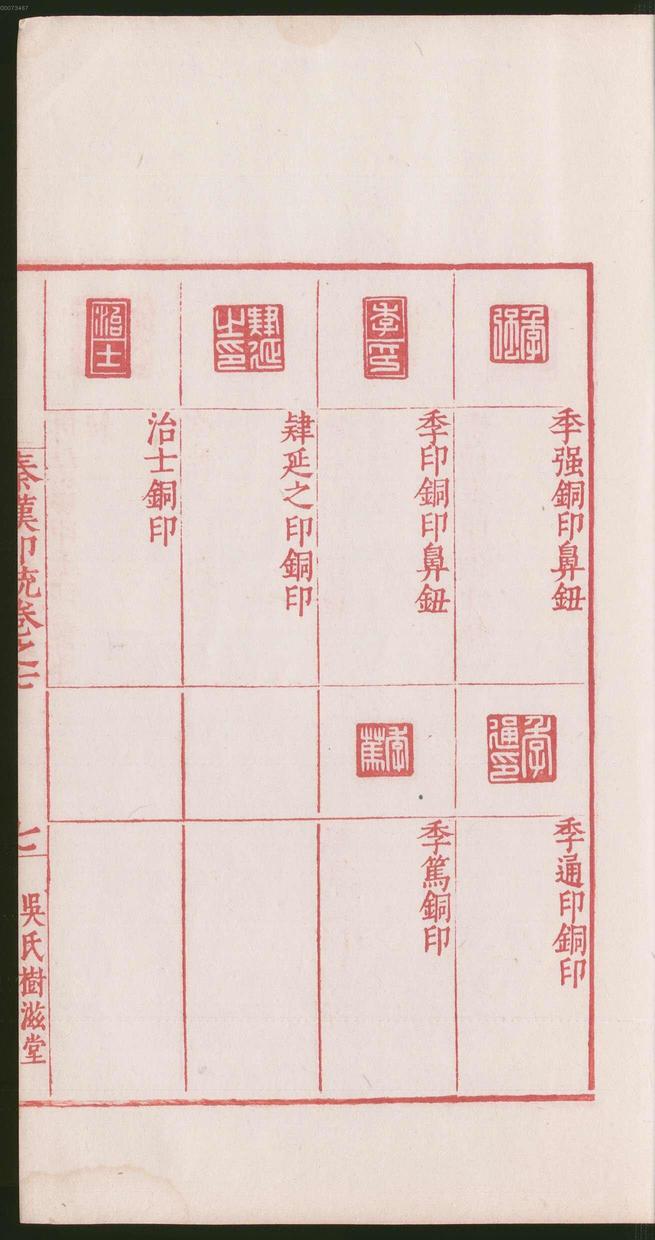 00073467
季强
季强銅印鼻鈕
季通印
季通印銅印
季印
季印銅印鼻鈕
季篤
季篤銅印
肄延之印
肄延之印銅印
治士
治士銅印
秦漢印統卷之七
七
吳氏樹滋堂